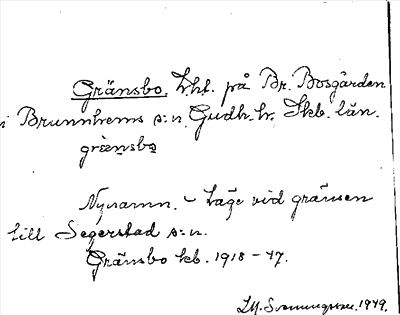 Gränsbo, lht. på Br. Bosgården
i Brunnhems s:n, Gudh. hr. Skb. län.
grænsbo
Nynamn. – Läge vid gränsen
till Segerstad s:n.
Gränsbo kb. 1918 – 47.
1949.